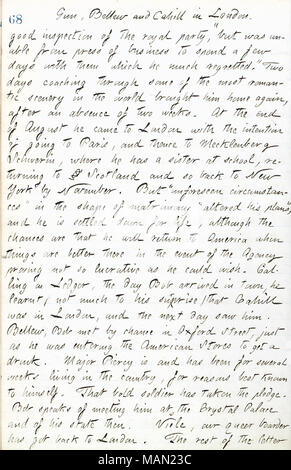 68
Gun, Bellew and Cahill in London.
good inspection of the royal party, "but was un-
able from press of business to spend a few
days with them which he much regretted." Two
days coaching through some of the most roman-
tic scenery in the world brought him home again,
after an absence of two weeks. At the end
of August he came to London with the intention
of going to Paris, and thence to Mecklenberg
Schwerin, where he has a sister at school, re-
turning to Scotland and so back to New
York by November. But "unforeseen circumstan-
ces" in the shape of matrimony "altered his plans",
and he is settled down for life, although the
chances are that he will return to America when
things are better there in the event of the Agency
proving not so lucrative as he could wish. Cal-
ling at Ledger, the day Bob arrived in town, he
learnt, not much to his surprise, that Cahill
was in London, and the next day saw him.
Bellew, Bob met by chance in Oxford Street, just
as he was entering the American Stores to get a
drink. Major Percy is and has been for several
weeks living in the country, for reasons best known
to himself. That bold soldier has taken the pledge.
Bob speaks of meeting him at the Crystal Palace
and of his state then. Viele, our queer boarder
has got back to London. The rest of the letter
alamy
Image ID: MAN23C
www.alamy.com